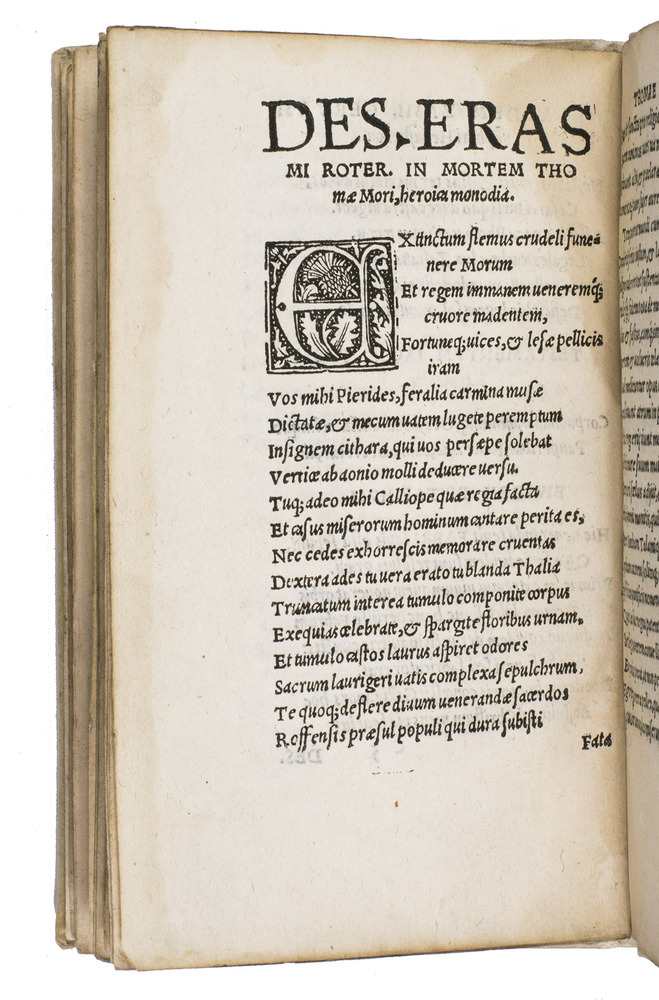 DES. ERAS
MI ROTER. IN MORTEM THO
mæ Mori, heroica monodia.
EXtinctum flemus crudeli fune=
nere Morum
Et regem immanem ueneremq́;
cruore madentem,
Fortunæq; uices, & lesæ pellicis
iram
Vos mihi Pierides, feralia carmina musæ
Dictatæ, & mecum uatem lugete peremptum
Insignem cithara, qui uos persæpe solebat
Vertice ab aonio molli deducere uersu.
Tuq; adeo mihi Calliope quæ regia facta
Et casus miserorum hominum cantare perita es,
Nec cedes exhorrescis memorare cruentas
Dextera ades tu uera erato tu blanda Thalia
Truncatum interea tumulo componite corpus
Exequias celebrate, & spargite floribus urnam.
Et tumulo castos laurus aspiret odores
Sacrum laurigeri uatis complexa sepulchrum,
Te quoq; deflere diuum uenerandæ sacerdos
Roffensis præsul populi qui dura subisti
Fata
THOMAE